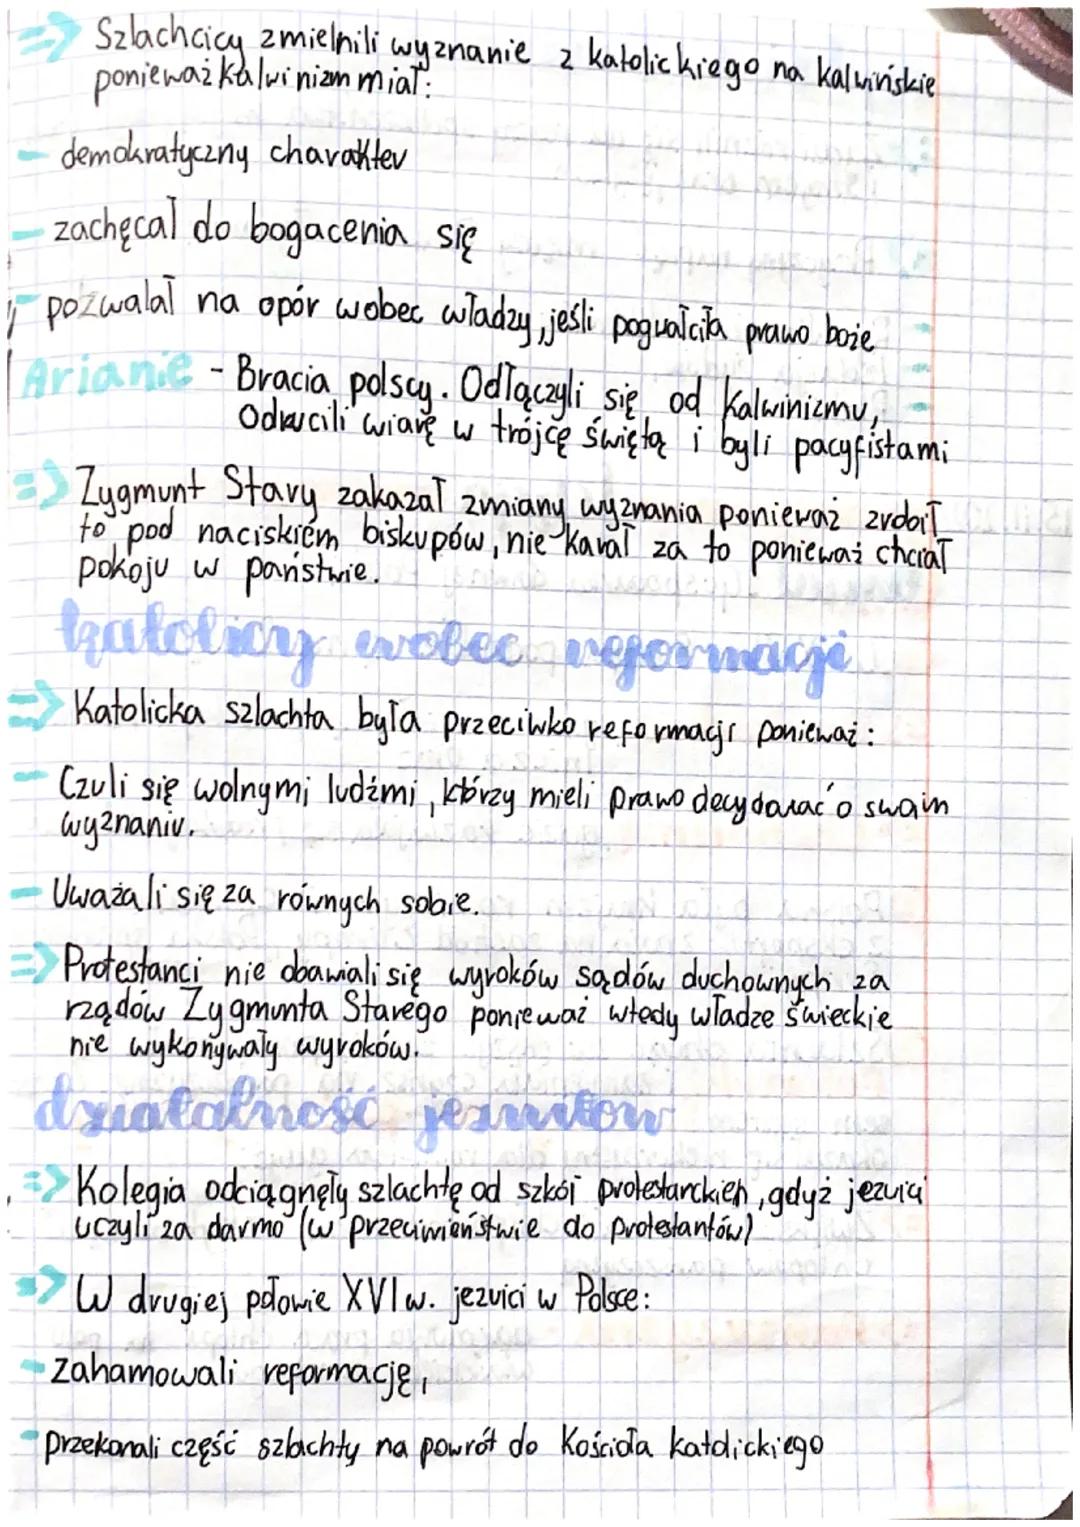 => Szlachcicy zmielnili wyznanie z katolickiego na kalwińskie
ponieważ kalwinizm miał:
- demokratyczny charakter
- zachęcał do bogacenia się
- pozwalał na opór wobec władzy, jeśli pogwałciła prawo boże
Arianie - Bracia polscy. Odłączyli się od kalwinizmu,
Odrucili wiarę w trójcę świętą i byli pacyfistami
=> Zygmunt Stary zakazał zmiany wyznania ponieważ zrobił
to pod naciskiem biskupów, nie karał za to ponieważ chciał
pokoju w państwie.
katolicy wobec reformacji
=> Katolicka szlachta była przeciwko reformacji ponieważ:
- Czuli się wolnymi ludźmi, którzy mieli prawo decydować o swoim
wyznaniu.
- Uważali się za równych sobie.
=> Protestanci nie obawiali się wyroków sądów duchownych za
rządów Zygmunta Starego ponieważ wtedy władze świeckie
nie wykonywały wyroków.
działalność jezuitów
=> Kolegia odciągnęły szlachtę od szkół protestanckich, gdyż jezuici
uczyli za darmo (w przeciwieństwie do protestantów)
=> W drugiej połowie XVI w. jezuici w Polsce:
- zahamowali reformację,
- przekonali część szlachty na powrót do Kościoła katolickiego